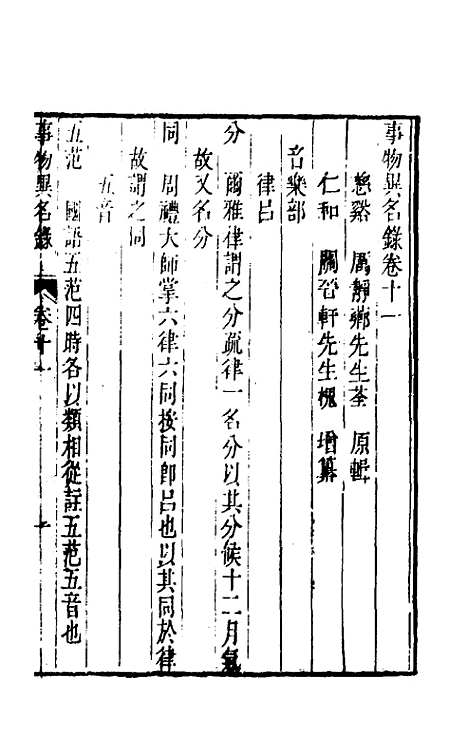 事物異名錄卷十一
慈谿 厲靜薌先生荃 原輯
仁和 關晉軒先生槐 增纂
音樂部
律呂
分 爾雅律謂之分疏律一名分以其分候十二月氣
故又名分
同 周禮大師掌六律六同按同卽呂也以其同於律
故謂之同
五音
五范 國語五范四時各以類相從註五范五音也
事物異名錄 卷十一 一